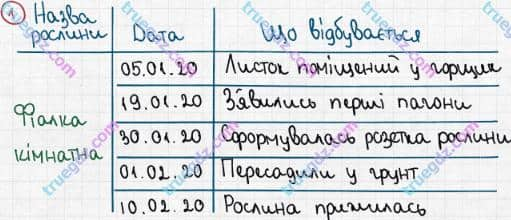 1 Назва рослини | Дата | Що відбувається
Фіалка кімнатна | 05.01.20 | Листок поміщений у горщик
19.01.20 | З'явились перші пагони
30.01.20 | Сформувалась розетка рослини
01.02.20 | Пересадили у ґрунт
10.02.20 | Рослина прижилась
truegdz.com